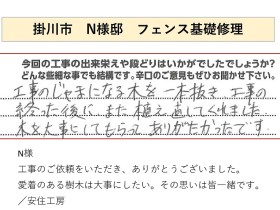 掛川市　N様邸　フェンス基礎修理
今回の工事の出来栄えや段どりはいかがでしたでしょうか?
どんな些細な事でも結構です。辛口のご意見もぜひお聞かせ下さい。
工事のじゃまになる木を一本抜き 工事の
終った後に また植え直してくれました
木を大事にしてもらって ありがたかったです.
N様
工事のご依頼をいただき、ありがとうございました。
愛着のある樹木は大事にしたい。その思いは皆一緒です。
／安住工房